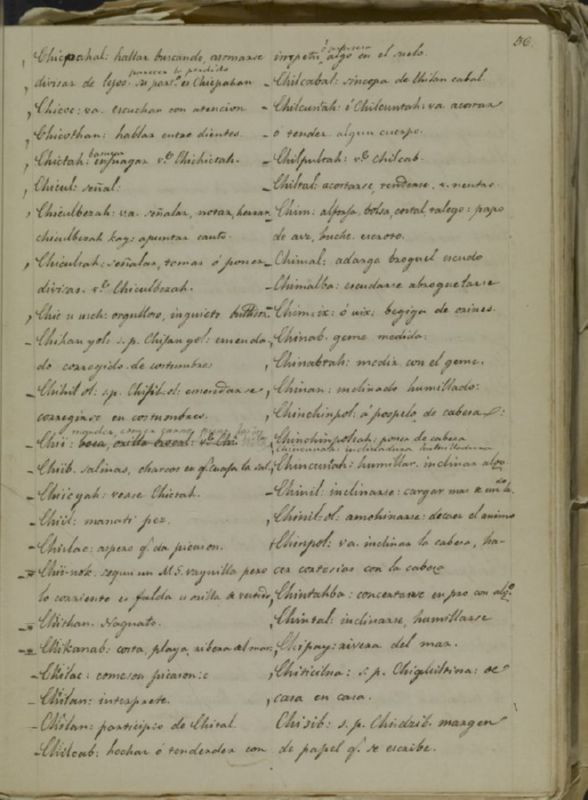 56.
Chicpahal: hallar buscando, asomarse
parecer lo perdido
divisar de lejos. su part.º es Chicpahan
Chicoc: va. escuchar con atencion
Chicothan: hablar entre dientes.
Chictah: enjuagar v.º Chichictah.
Chicul: señal:
Chiculbezah: va. señalar, notar, herrar
chiculbezah kay: apuntar canto.
Chicultah: señalar, tomar ó poner
divisas. v.º Chiculbezah.
Chic u uich: orgulloso, inquieto
Chihanyol: s.p. Chijanyol: emenda
do corregido de costumbres
Chihil ol: s.p. Chijil ol: emendarse
corregirse en costumbres.
Chii: boca, orilla
Chiib. salinas, charcos en q.º cuaja la sal
Chiicyah: vease Chictah.
Chiil: manatí pez.
Chiilac: aspero q.º da picazon.
Chii-nok. segun un M.S. vaynilla pero
lo corriente es falda u orilla de vestido
Chiithan. Naguato.
Chikanab: costa, playa, ribera al mar
Chilac: comezon picazon:
Chilan: interprete.
Chilan: participio de Chital
Chilcab: hechar ó tender con
ímpetu algo en el suelo.
Chilcabal: síncopa de Chilan cabal.
Chilcuntah: ó Chilcuntah: va. acostar
ó tender algun cuerpo.
Chilpultah: v.º chilcab.
Chiltal: acostarse, tenderse. v. neutro.
Chim: alforja, bolsa, costal, talego: papo
de ave, buche. escroto.
Chimal: adarga broquel escudo
Chimalba: escudarse abroquelarse
Chim ix: ó uix: begiga de orines.
Chinab. geme medida.
Chinabtah: medir con el geme.
Chinan: inclinado humillado:
Chinchinpol: á pospelo, de cabeza
Chinchinpoltah: poner de cabeza
Chincuntah: humillar. inclinar algo
Chinil: inclinarse: cargar mas
Chinil-ol: amohinarse: decaer el animo
Chinpol: va. inclinar la cabeza, ha-
cer cortesias con la cabeza
Chintahba: concertarse en pro con alg.º
Chintal: inclinarse, humillarse
Chipay: rivera del mar.
Chiticilna: s.p. de
casa en casa.
Chisib: s.p. Chidzib. margen
de papel q.º se escribe.